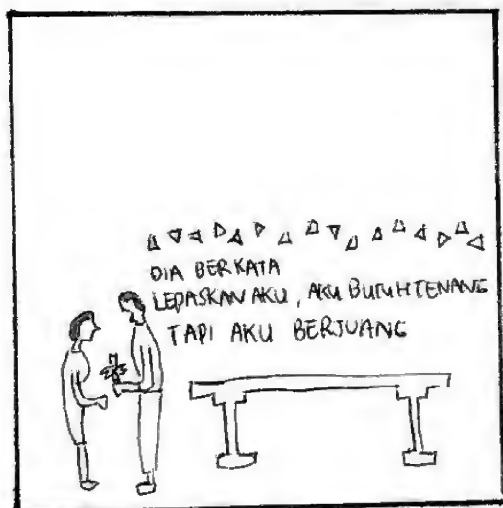 DIA BERKATA
LEPASKAN AKU, AKU BUTUH TENANG
TAPI AKU BERJUANG